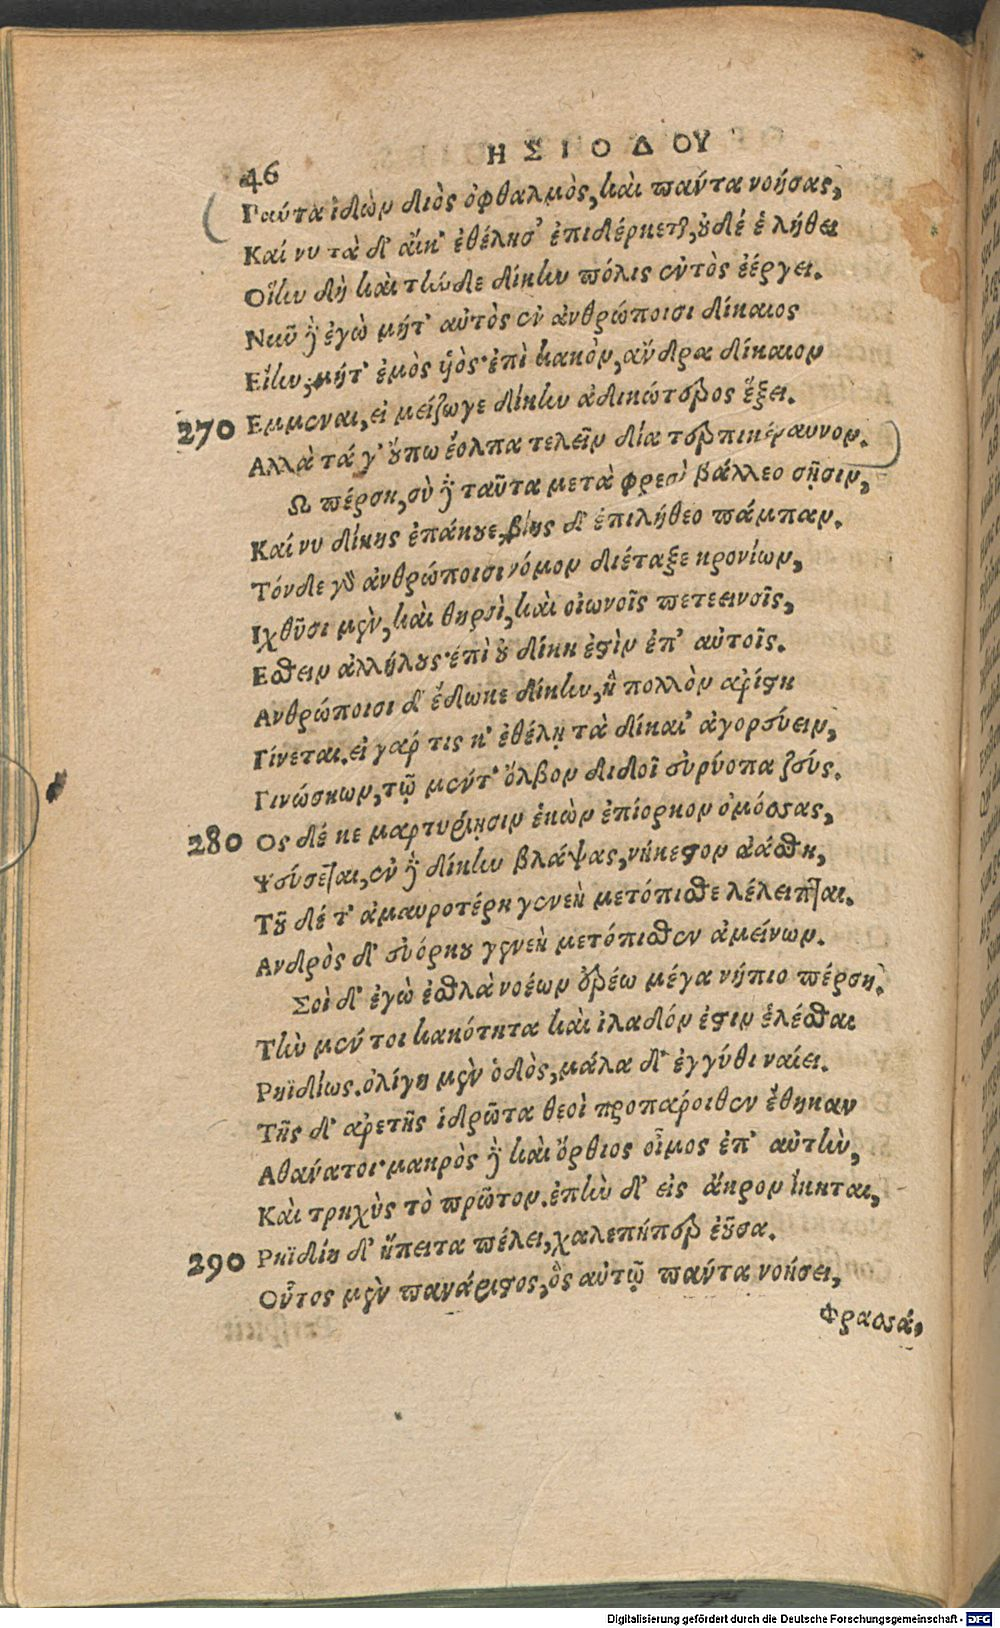 46
ΗΣΙΟΔΟΥ
Γαύτα ἰδὼν διὸς ὀφθαλμὸς, καὶ παύτα νοήσας,
Καί νυ τὰ δ' αἴκ' ἐθέλησ' ἐπιδέρκεται, ουδέ ἑ λήθει
Οἵην δὴ καὶ τήνδε δίκην πόλις ἐντὸς ἐέργει.
Νῦν δὲ ἐγὼ μήτ' αὐτὸς ἐν ἀνθρώποισι δίκαιος
Εἴην, μήτ' ἐμὸς υἱὸς· ἐπὶ κακὸν, ἄνδρα δίκαιον
270 Εμμεναι, εἰ μείζωγε δίκην ἀδικώτερος ἕξει.
Αλλὰ τά γ' οὔπω ἔολπα τελεῖν δία τερπικέραυνον.
Ω πέρση, σὺ δὲ ταῦτα μετὰ φρεσὶ βάλλεο σῇσιν,
Καί νυ δίκης ἐπάκουε, βίης δ' ἐπιλήθεο πάμπαν.
Τόνδε γὰρ ἀνθρώποισι νόμον διέταξε κρονίων,
Ιχθῦσι μὲν, καὶ θηρσὶ, καὶ οἰωνοῖς πετεεινοῖς,
Εσθειν ἀλλήλους· ἐπὶ οὐ δίκη ἐστὶν ἐπ' αὐτοῖς.
Ανθρώποισι δ' ἔδωκε δίκην, ἣ πολλὸν ἀρίστη
Γίνεται. εἰ γάρ τις κ' ἐθέλῃ τὰ δίκαι' ἀγορεύειν,
Γινώσκων, τῷ μέντ' ὄλβον διδοῖ εὐρύοπα ζεύς.
280 Ος δέ κε μαρτυρίῃσιν ἑκὼν ἐπίορκον ὀμόσσας,
Ψεύσεται, ἐν δὲ δίκην βλάψας, νήκεστον ἀάσθη,
Τοῦ δέ τ' ἀμαυροτέρη γενεὴ μετόπισθε λέλειπται.
Ανδρὸς δ' εὐόρκου γενεὴ μετόπισθεν ἀμείνων.
Σοὶ δ' ἐγὼ ἐσθλὰ νοέων ἐρέω μέγα νήπιο πέρση.
Τὴν μέν τοι κακότητα καὶ ἰλαδόν ἐστιν ἑλέσθαι
Ρηϊδίως. ὀλίγη μὲν ὁδὸς, μάλα δ' ἐγγύθι ναίει.
Τῆς δ' ἀρετῆς ἱδρῶτα θεοὶ προπάροιθεν ἔθηκαν
Αθανάτοι· μακρὸς δὲ καὶ ὄρθιος οἶμος ἐπ' αὐτὴν,
Καὶ τρηχὺς τὸ πρῶτον. ἐπὴν δ' εἰς ἄκρον ἵκηται,
290 Ρηϊδίη δ' ἤπειτα πέλει, χαλεπήπερ ἐοῦσα.
Οὗτος μὲν πανάριστος, ὃς αὐτῷ πάντα νοήσει,
Φρασσά,
Digitalisierung gefördert durch die Deutsche Forschungsgemeinschaft - DFG